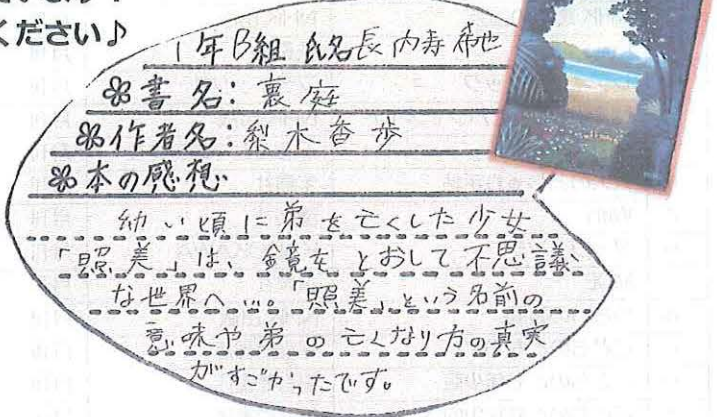 ください♪
1年B組 氏名長内寿希也
❀書名:裏庭
❀作者名:梨木香歩
❀本の感想
幼い頃に弟を亡くした少女
「照美」は、鏡をとおして不思議
な世界へ…。「照美」という名前の
意味や弟の亡くなり方の真実
がすごかったです。